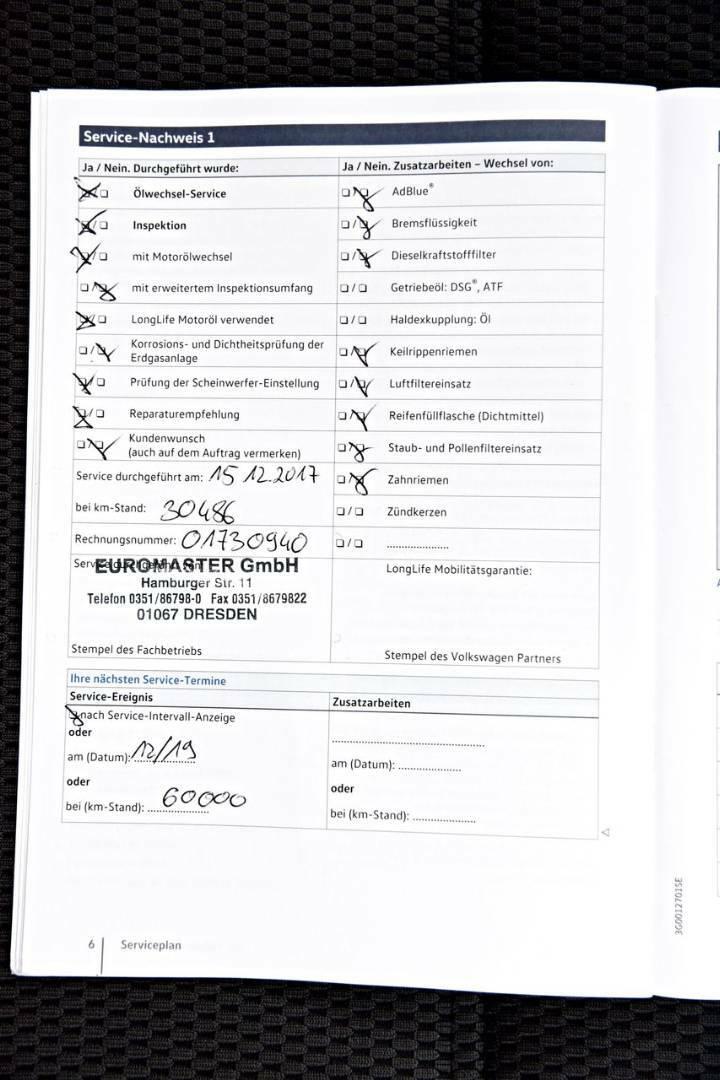 Service-Nachweis 1
Ja / Nein. Durchgeführt wurde:
Ölwechsel-Service
Inspektion
mit Motorölwechsel
mit erweitertem Inspektionsumfang
LongLife Motoröl verwendet
Korrosions- und Dichtheitsprüfung der
Erdgasanlage
Prüfung der Scheinwerfer-Einstellung
Reparaturempfehlung
Kundenwunsch
(auch auf dem Auftrag vermerken)
Service durchgeführt am: 15.12.2017
bei km-Stand: 30486
Rechnungsnummer: 01730940
EUROMASTER GmbH
Hamburger Str. 11
Telefon 0351/86798-0 Fax 0351/8679822
01067 DRESDEN
Stempel des Fachbetriebs
Ja / Nein. Zusatzarbeiten – Wechsel von:
AdBlue®
Bremsflüssigkeit
Dieselkraftstofffilter
Getriebeöl: DSG®, ATF
Haldexkupplung: Öl
Keilrippenriemen
Luftfiltereinsatz
Reifenfüllflasche (Dichtmittel)
Staub- und Pollenfiltereinsatz
Zahnriemen
Zündkerzen
LongLife Mobilitätsgarantie:
Stempel des Volkswagen Partners
Ihre nächsten Service-Termine
Service-Ereignis
nach Service-Intervall-Anzeige
oder
am (Datum): 12/19
oder
bei (km-Stand): 60000
Zusatzarbeiten
am (Datum):
oder
bei (km-Stand):
3G0012701SE
6 Serviceplan